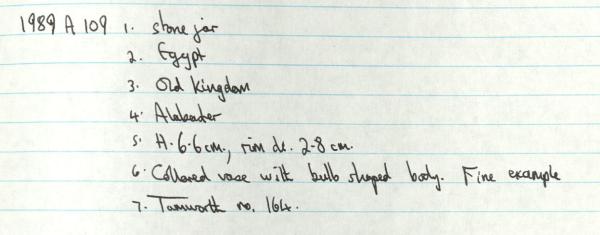 1989 A 109 1. stone jar
2. Egypt
3. Old Kingdom
4. Alabaster
5. H. 6.6 cm, rim di. 2.8 cm.
6. Collared vase with bulb shaped body. Fine example
7. Tamworth no. 164.